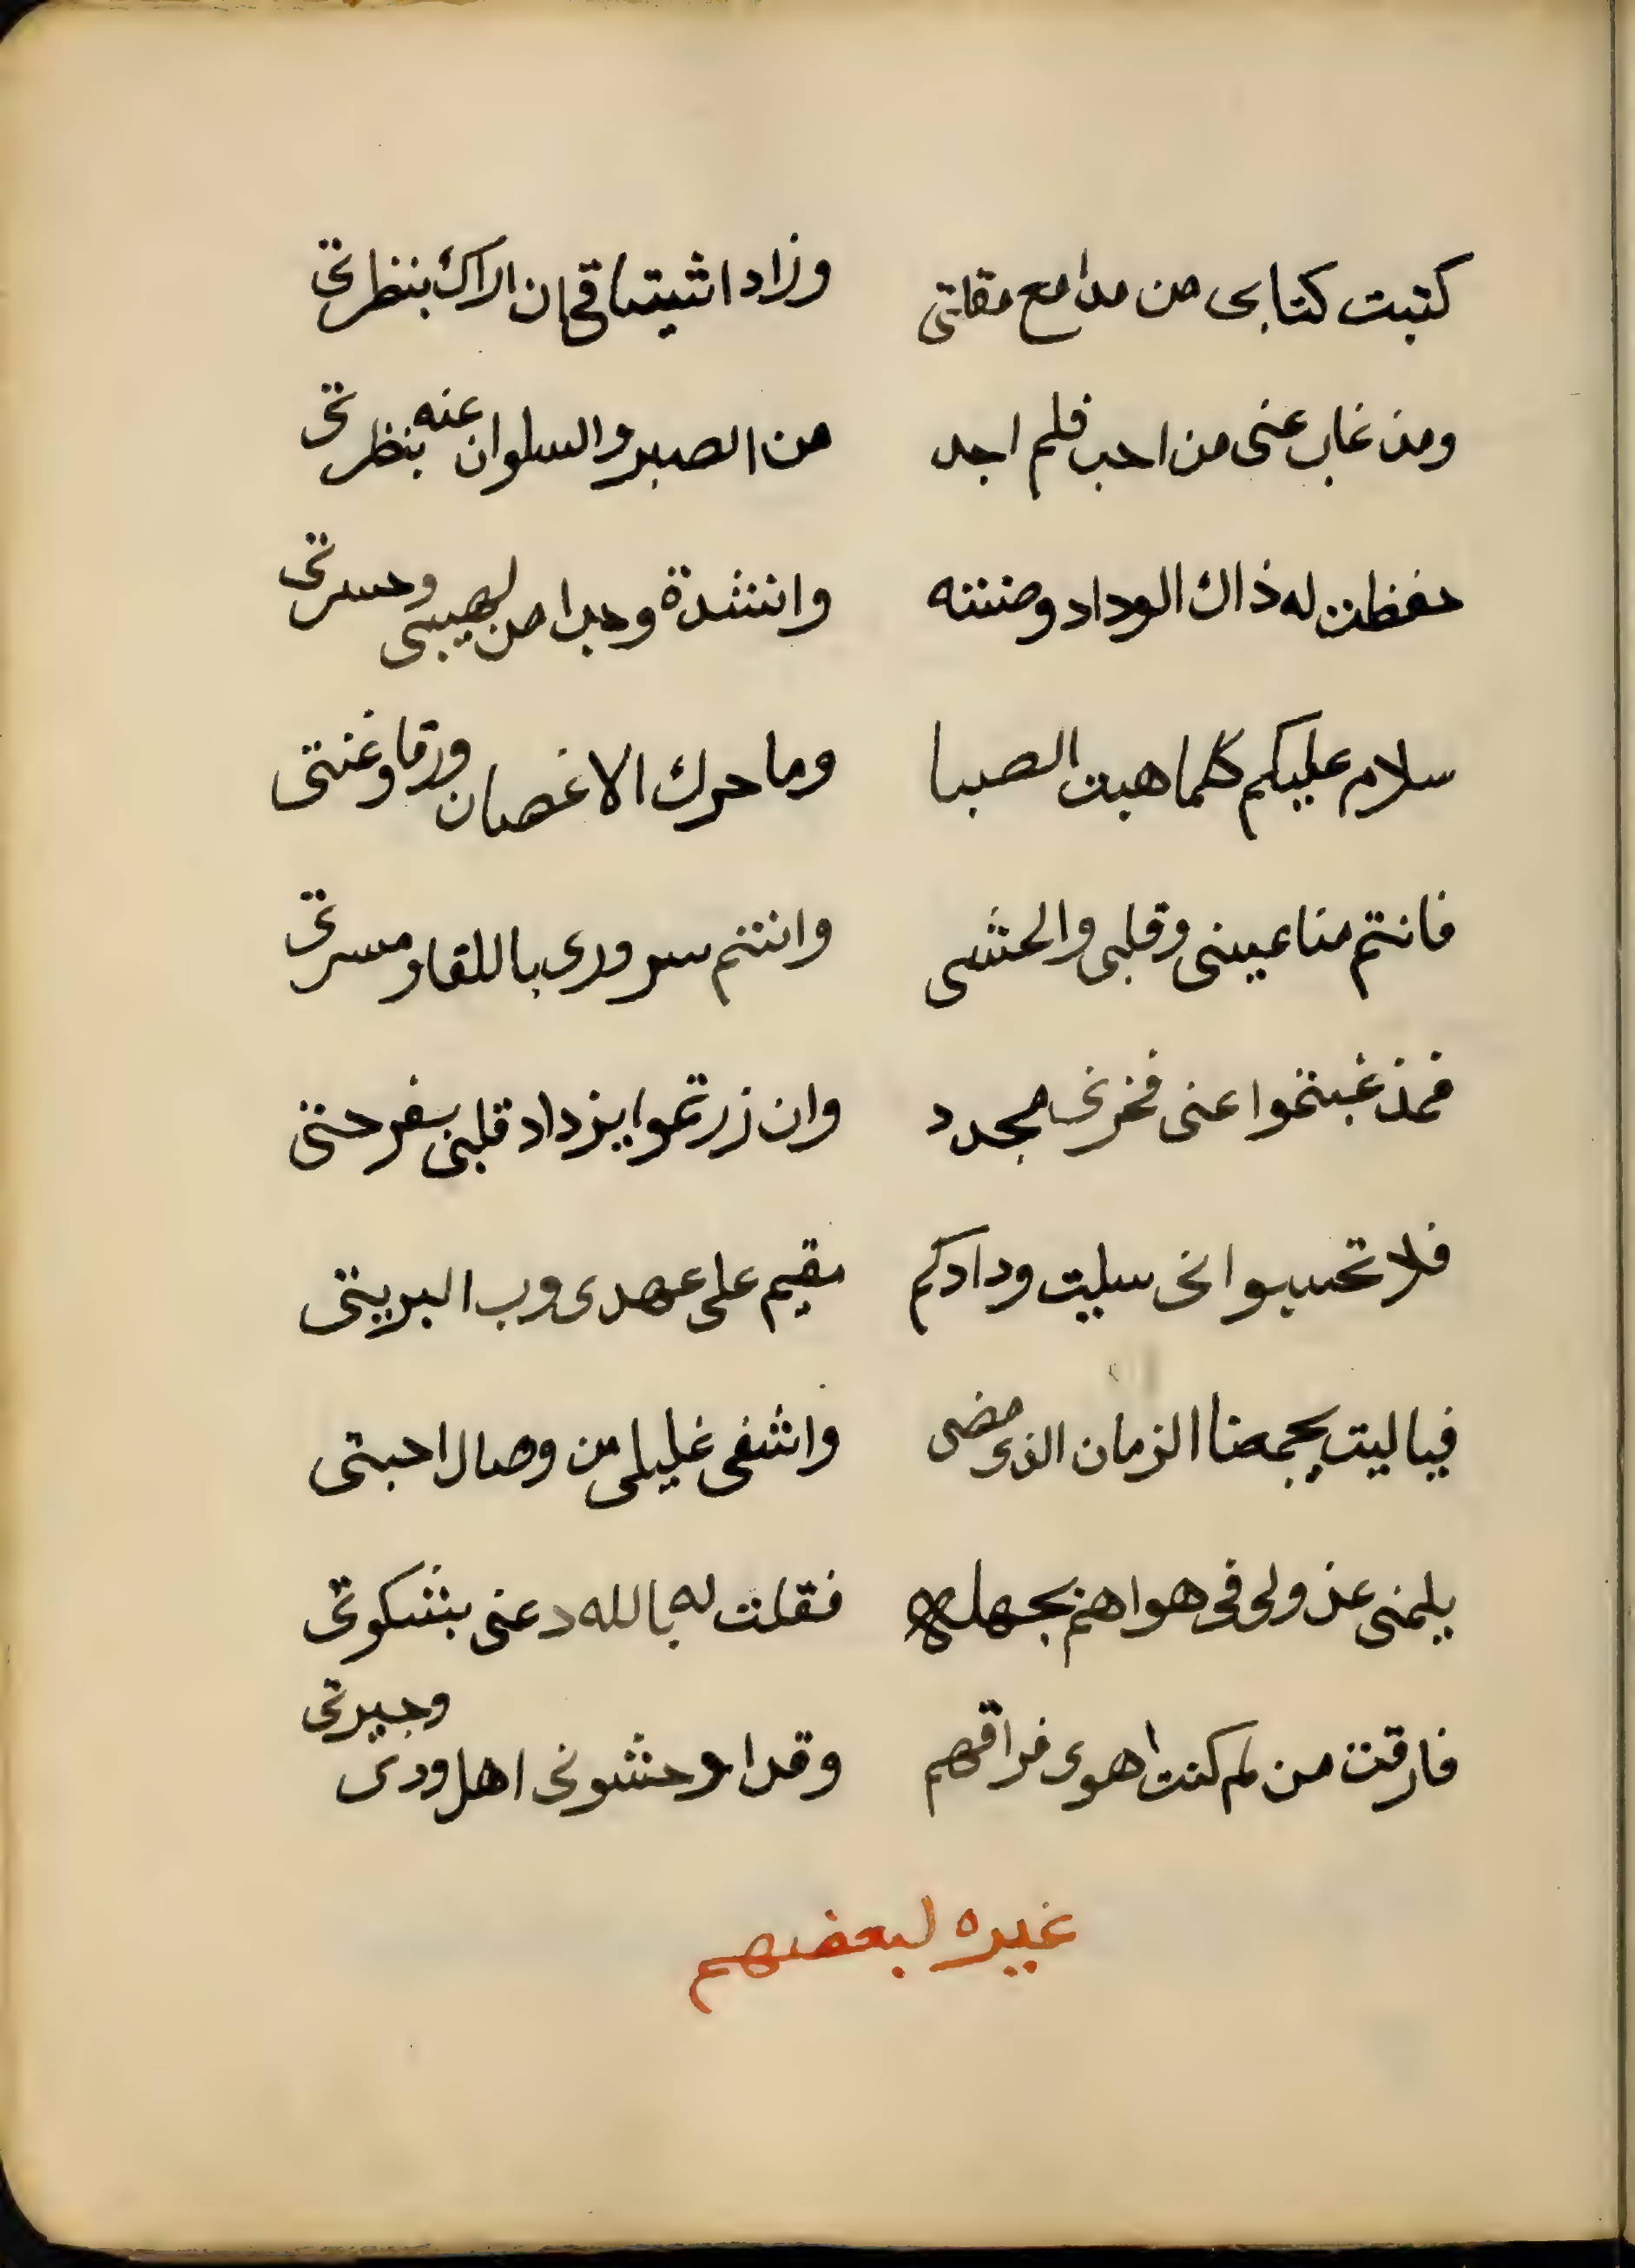 كتبت كتابى من مدامع مقلتى وزاد اشيتاقى ان اراك بنظرتى
ومذ غاب عنى من احب فلم اجد من الصبر والسلوان عنه بنظرتى
حفظت له ذاك الوداد وصنته وانشدة وجدا من لهيبى وحسرتى
سلام عليكم كلما هبت الصبا وما حرك الاغصان ورقا وغنتى
فانتم مناعينى وقلبى والحشى وانتم سرورى باللقا ومسرتى
فمذ غبتموا عنى فحزنى مجدد وان زرتموا يزداد قلبى بفرحتى
فلا تحسبوا انى سليت ودادكم مقيم على عهدى ورب البريتى
فياليت يجمعنا الزمان الذى مضى واشفى غليلى من وصال احبتى
يلمنى عذولى فى هواهم بجهله فقلت له بالله دعنى بشكوتى
فارقت من لم كنت اهوى فراقهم وقد اوحشونى اهل ودى وجيرتى
غيره لبعضهم